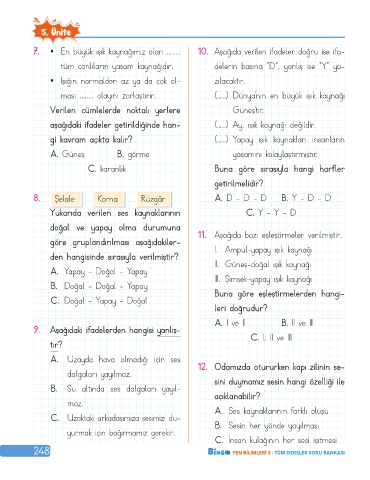 5. Ünite
7. • En büyük ışık kaynağımız olan ........
tüm canlıların yaşam kaynağıdır.
• Işığın normalden az ya da çok ol-
ması ........ olayını zorlaştırır.
Verilen cümlelerde noktalı yerlere
aşağıdaki ifadeler getirildiğinde han-
gi kavram açıkta kalır?
A. Güneş B. görme
C. karanlık
8. Şelale Korna Rüzgâr
Yukarıda verilen ses kaynaklarının
doğal ve yapay olma durumuna
göre gruplandırılması aşağıdakiler-
den hangisinde sırasıyla verilmiştir?
A. Yapay - Doğal - Yapay
B. Doğal - Doğal - Yapay
C. Doğal - Yapay - Doğal
9. Aşağıdaki ifadelerden hangisi yanlış-
tır?
A. Uzayda hava olmadığı için ses
dalgaları yayılmaz.
B. Su altında ses dalgaları yayıl-
maz.
C. Uzaktaki arkadaşımıza sesimizi du-
yurmak için bağırmamız gerekir.
10. Aşağıda verilen ifadeler doğru ise ifa-
delerin başına "D", yanlış ise "Y" ya-
zılacaktır.
(.....) Dünya'nın en büyük ışık kaynağı
Güneş'tir.
(.....) Ay, ışık kaynağı değildir.
(.....) Yapay ışık kaynakları insanların
yaşamını kolaylaştırmıştır.
Buna göre sırasıyla hangi harfler
getirilmelidir?
A. D - D - D B. Y - D - D
C. Y - Y - D
11. Aşağıda bazı eşleştirmeler verilmiştir.
I. Ampul-yapay ışık kaynağı
II. Güneş-doğal ışık kaynağı
III. Şimşek-yapay ışık kaynağı
Buna göre eşleştirmelerden hangi-
leri doğrudur?
A. I ve II B. II ve III
C. I, II ve III
12. Odamızda otururken kapı zilinin se-
sini duymamız sesin hangi özelliği ile
açıklanabilir?
A. Ses kaynaklarının farklı oluşu
B. Sesin her yönde yayılması
C. İnsan kulağının her sesi işitmesi
248
BinGO FEN BİLİMLERİ 3 - TÜM DERSLER SORU BANKASI